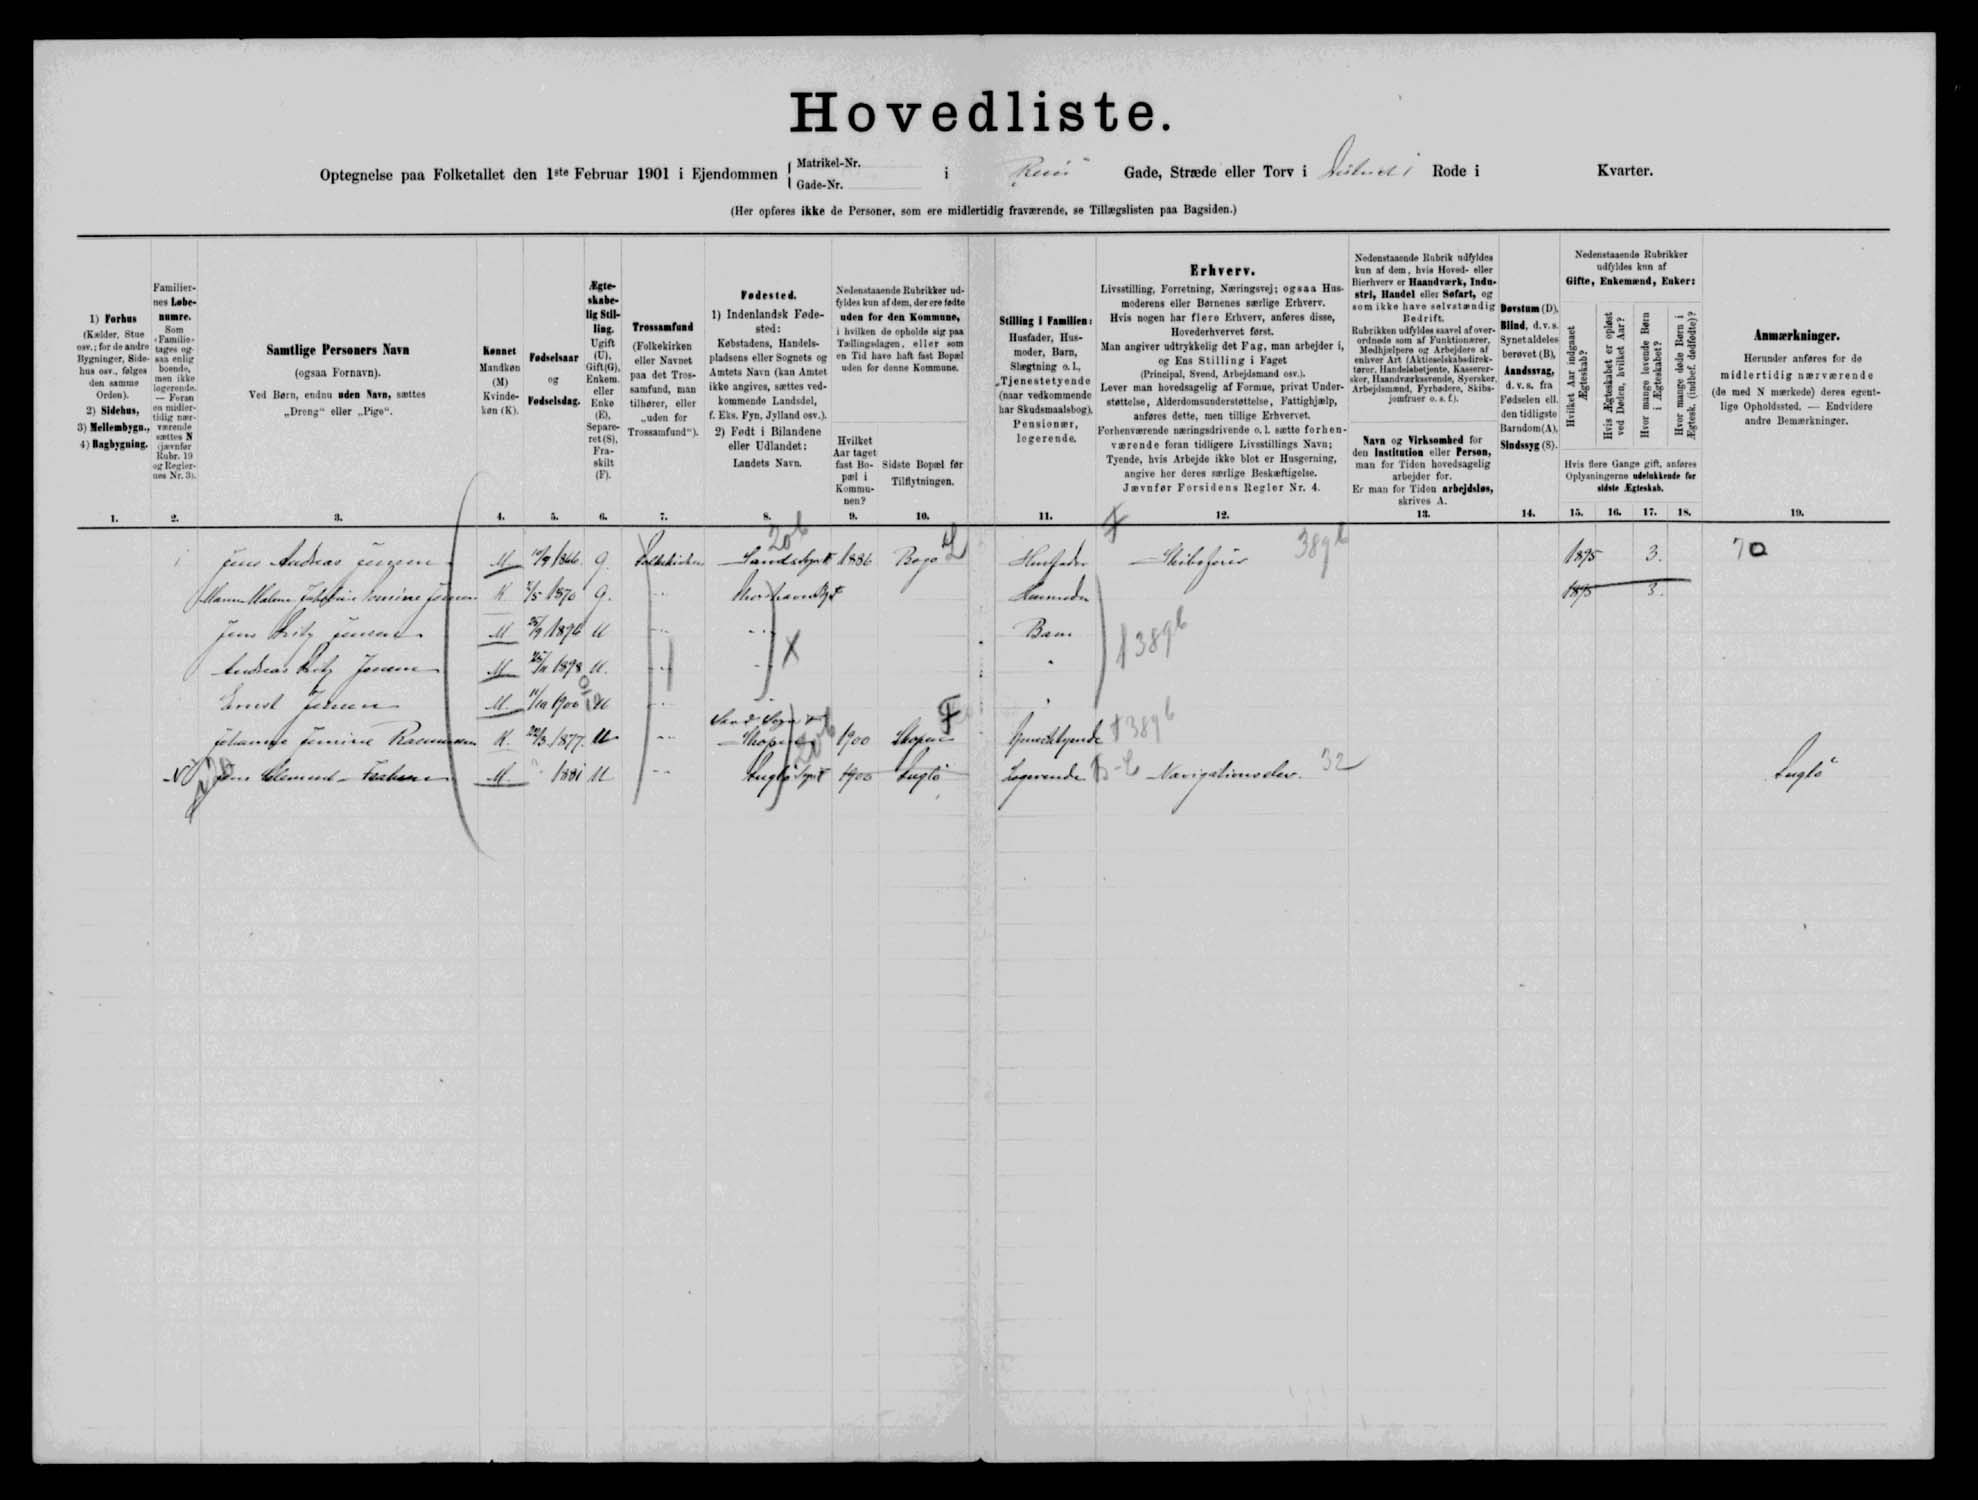 Hovedliste.
Optegnelse paa Folketallet den 1ste Februar 1901 i Ejendommen { Matrikel-Nr. Gade-Nr. i Gade, Stræde eller Torv i Rode i Kvarter.
(Her opføres ikke de Personer, som ere midlertidig fraværende, se Tillægslisten paa Bagsiden.)
1) Forhus (Kælder, Stue osv.; for de andre Bygninger, Sidehus osv., følges den samme Orden). 2) Sidehus, 3) Mellembygn., 4) Bagbygning.
Familiernes Løbenumre. Som „Familie“ tages ogsaa enlig boende, men ikke logerende. — Foran en midlertidig nærværende sættes N (jævnfør Rubr. 19 og Reglernes Nr. 3).
Samtlige Personers Navn (ogsaa Fornavn). Ved Børn, endnu uden Navn, sættes „Dreng“ eller „Pige“.
Kønnet Mandkøn (M) Kvindekøn (K).
Fødselsaar og Fødselsdag.
Ægteskabelig Stilling. Ugift (U), Gift (G), Enkem. eller Enke (E), Separeret (S), Fraskilt (F).
Trossamfund (Folkekirken eller Navnet paa det Trossamfund, man tilhører, eller „uden for Trossamfund“).
Fødested. 1) Indenlandsk Fødested: Købstadens, Handelspladsens eller Sognets og Amtets Navn (kan Amtet ikke angives, sættes vedkommende Landsdel, f. Eks. Fyn, Jylland osv.). 2) Født i Bilandene eller Udlandet: Landets Navn.
Nedenstaaende Rubrikker udfyldes kun af dem, der ere fødte uden for den Kommune, i hvilken de opholde sig paa Tællingsdagen, eller som en Tid have haft fast Bopæl uden for denne Kommune.
Hvilket Aar taget fast Bopæl i Kommunen?
Sidste Bopæl før Tilflytningen.
Stilling i Familien: Husfader, Husmoder, Barn, Slægtning o. l., Tjenestetyende (naar vedkommende har Skudsmaalsbog), Pensionær, logerende.
Erhverv.
Livsstilling, Forretning, Næringsvej; ogsaa Husmoderens eller Børnenes særlige Erhverv.
Hvis nogen har flere Erhverv, anføres disse, Hovederhvervet først.
Man angiver udtrykkelig det Fag, man arbejder i, og Ens Stilling i Faget (Principal, Svend, Arbejdsmand osv.).
Lever man hovedsagelig af Formue, privat Understøttelse, Alderdomsunderstøttelse, Fattighjælp, anføres dette, men tillige Erhvervet.
Forhenværende næringsdrivende o. l. sætte forhenværende foran tidligere Livsstillings Navn; Tyende, hvis Arbejde ikke blot er Husgerning, angive her deres særlige Beskæftigelse.
Jævnfør Forsidens Regler Nr. 4.
Nedenstaaende Rubrik udfyldes kun af dem, hvis Hoved- eller Bierhverv er Haandværk, Industri, Handel eller Søfart, og som ikke have selvstændig Bedrift.
Rubrikken udfyldes saavel af overordnede som af Funktionærer, Medhjælpere og Arbejdere af enhver Art (Aktieselskabsdirektører, Handelsbetjente, Kasserersker, Haandværkssvende, Syersker, Arbejdsmænd, Fyrbødere, Skibsjomfruer o. s. f.).
Navn og Virksomhed for den Institution eller Person, man for Tiden hovedsagelig arbejder for.
Er man for Tiden arbejdsløs, skrives A.
Døvstum (D), Blind, d. v. s. Synet aldeles berøvet (B), Aandssvag, d. v. s. fra Fødselen ell. den tidligste Barndom (A), Sindssyg (S).
Nedenstaaende Rubrikker udfyldes kun af Gifte, Enkemænd, Enker:
Hvilket Aar indgaaet Ægteskab?
Hvis Ægteskabet er opløst ved Døden, hvilket Aar?
Hvor mange levende Børn i Ægteskabet?
Hvor mange døde Børn i Ægtesk. (indbef. dødfødte)?
Hvis flere Gange gift, anføres Oplysningerne udelukkende for sidste Ægteskab.
Anmærkninger.
Herunder anføres for de midlertidig nærværende (de med N mærkede) deres egentlige Opholdssted. — Endvidere andre Bemærkninger.
1. 2. 3. 4. 5. 6. 7. 8. 9. 10. 11. 12. 13. 14. 15. 16. 17. 18. 19.
1 Jens Andreas Jensen M 1866 G. Folkekirken Sands 1886 Husfader Skibsfører 389b 1895 3. 70
K 1870 G. " Thorshavn Husmoder 1895 3.
Jens Jensen M 1896 U " " Barn 389b
Andreas Jensen M 1898 U. " " "
Ernst Jensen M. 1900 U " " "
Sand Sogn
Johanne Rasmussen K. 22/3 1877 U " Skopen 1900 Skopen 389b
N Jens Clement M 1881 U " 1900 Logerende Navigationselev. 32